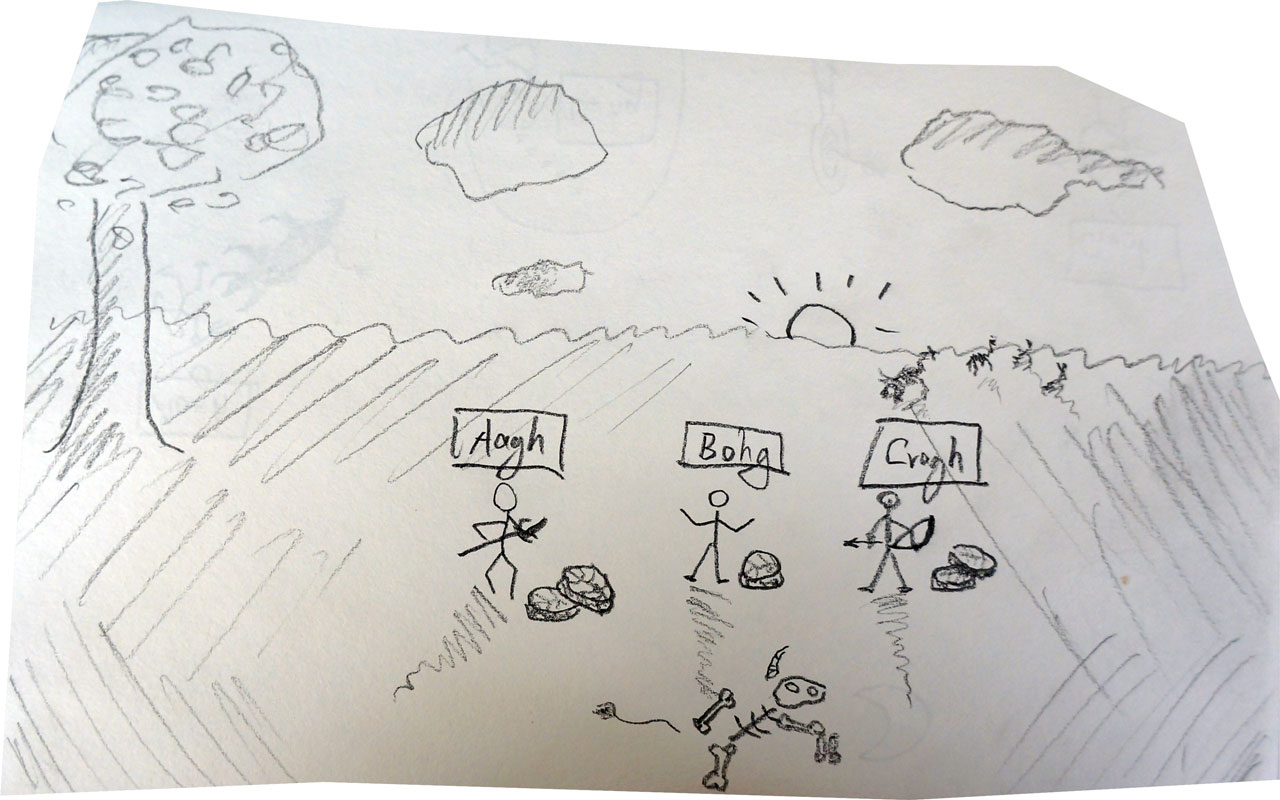 Aagh
Bohg
Cragh